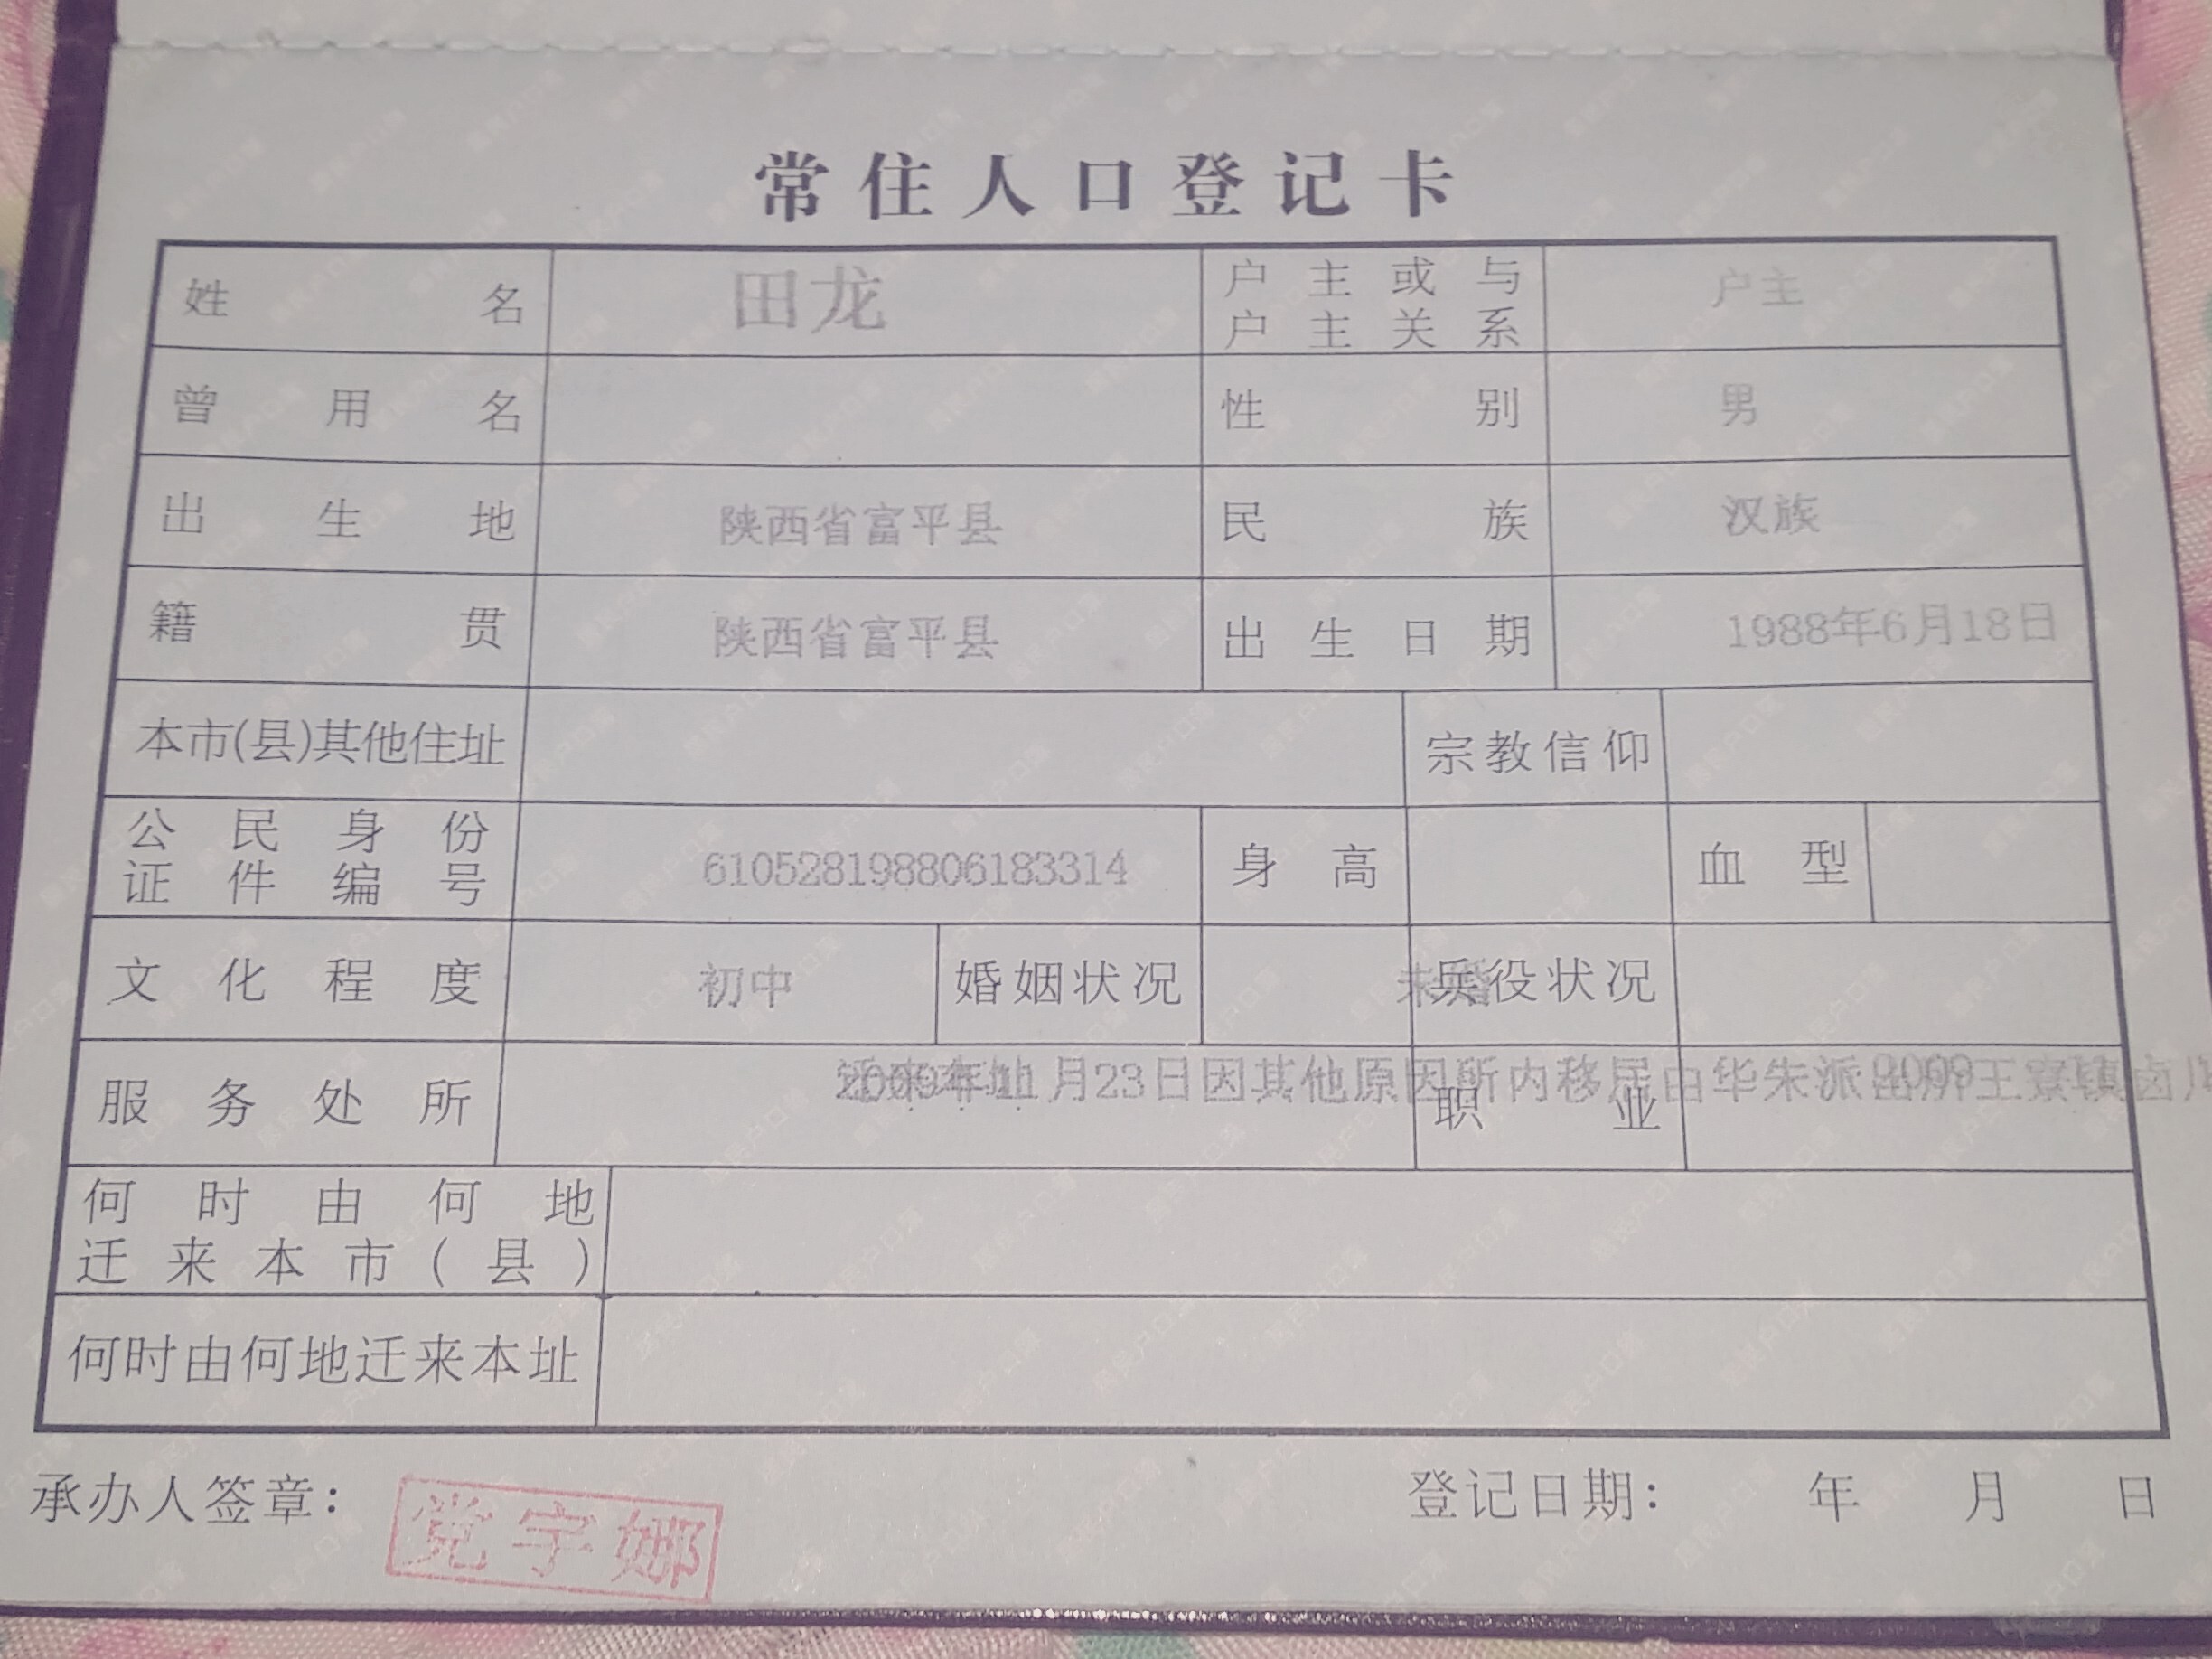 常住人口登记卡
姓名 田龙 户主或与户主关系 户主
曾用名 性别 男
出生地 陕西省富平县 民族 汉族
籍贯 陕西省富平县 出生日期 1988年6月18日
本市(县)其他住址 宗教信仰
公民身份证件编号 610528198806183314 身高 血型
文化程度 初中 婚姻状况 未婚 兵役状况
服务处所 月23日因其他原因所内移居由华朱派出所王寮镇 职业
何时由何地迁来本市(县)
何时由何地迁来本址
承办人签章: 党宇娜 登记日期: 年 月 日